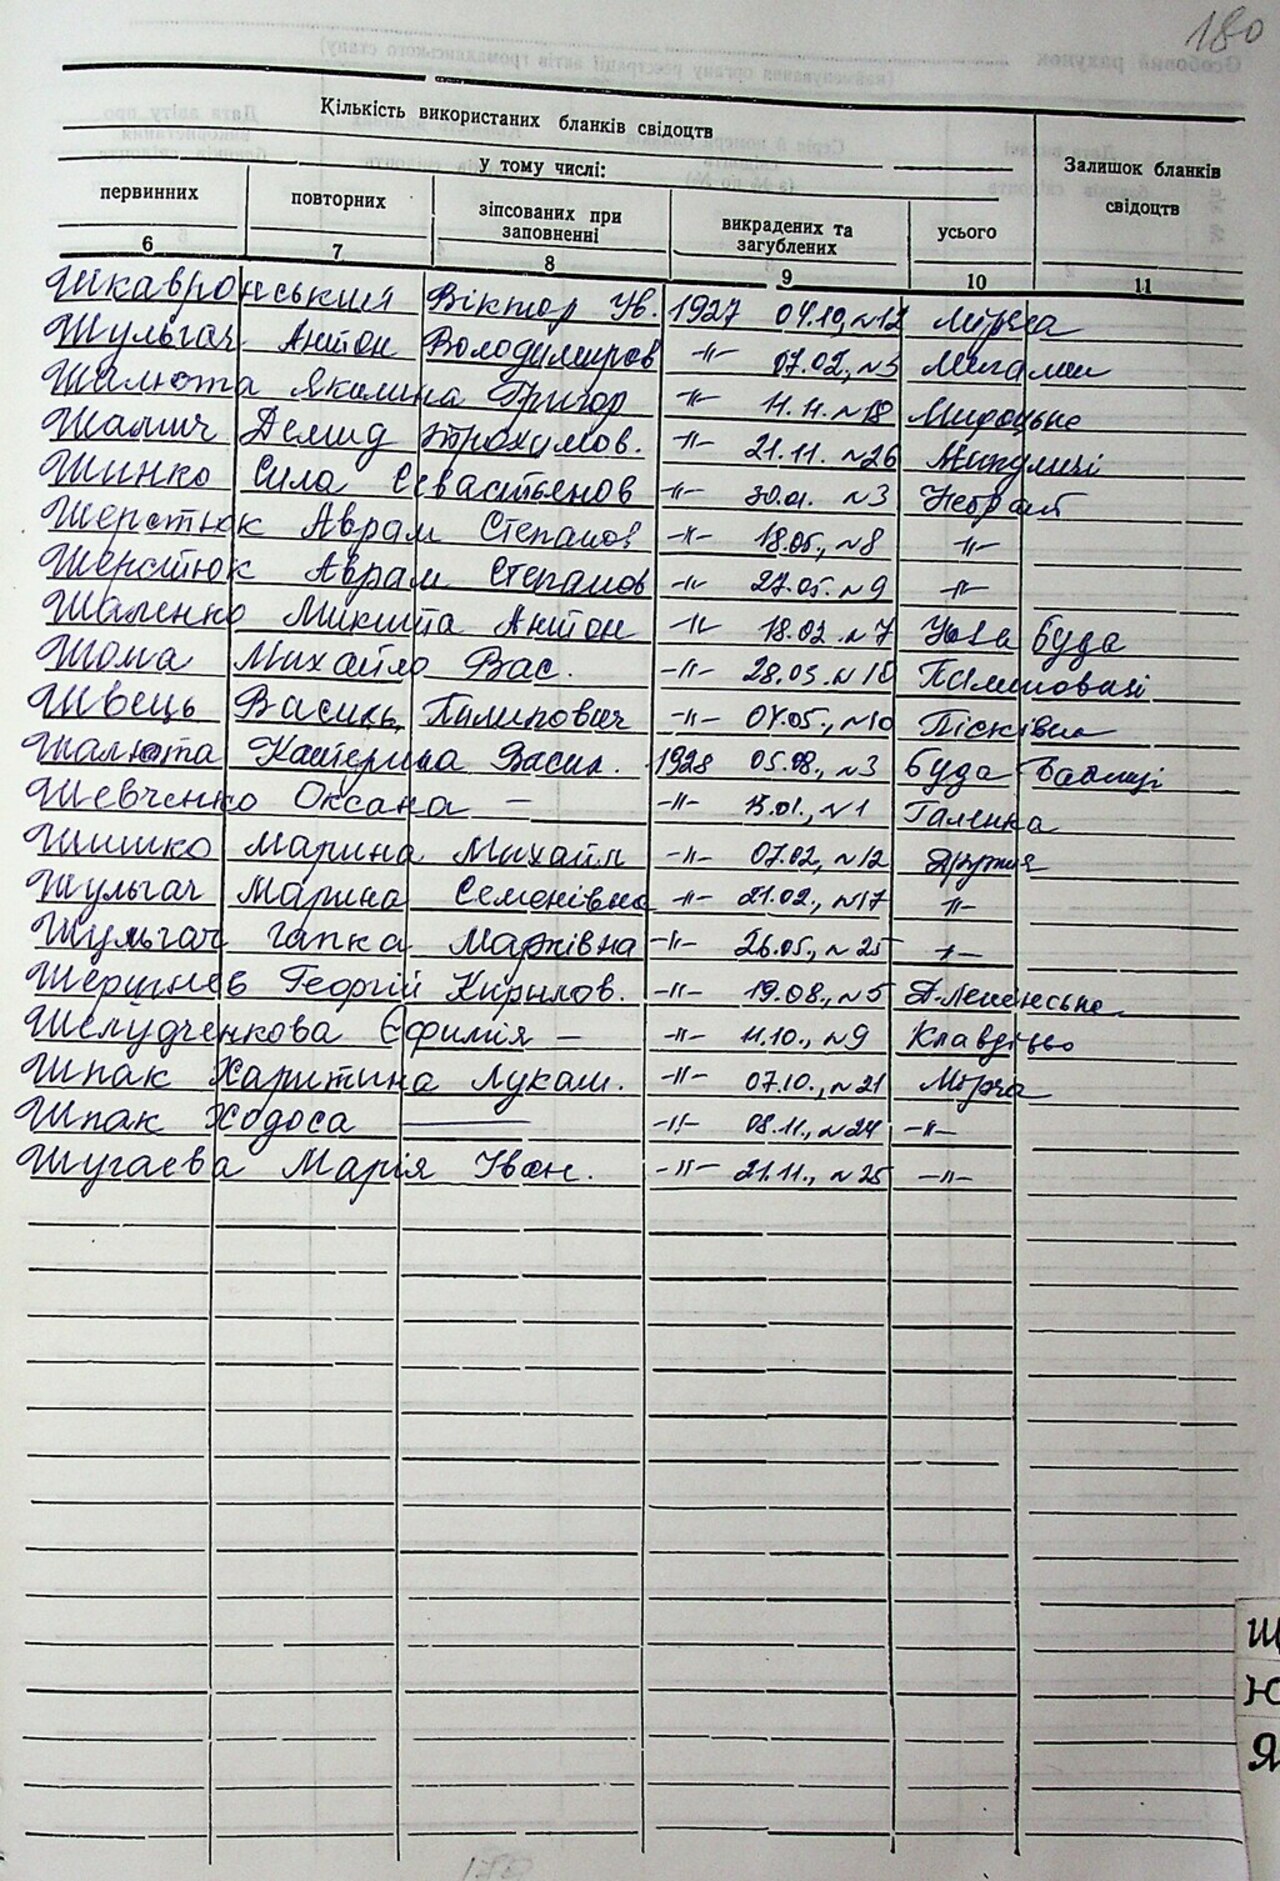 180
Кількість використаних бланків свідоцтв
Залишок бланків свідоцтв
у тому числі:
первинних повторних зіпсованих при заповненні викрадених та загублених усього
6 7 8 9 10 11
Шкавронський Віктор Ів. 1927 04.10, №12 Мірча
Шульгач Антон Володимиров -"- 07.02, №5 Мигалки
Шалюта Якилина Григор -"- 11.11. №18 Мироцьке
Шамич Демид Трохимов. -"- 21.11. №26 Микуличі
Шинко Сила Севастьенов -"- 30.01. №3 Небрат
Шерстюк Аврам Степанов -"- 18.05., №8 -"-
Шерстюк Аврам Степанов -"- 27.05. №9 -"-
Шаленко Микита Антон -"- 18.02. №7 Нова Буда
Шома Михайло Вас. -"- 28.03. №18
Швець Василь Пилипович -"- 04.05., №10 Пісківка
Шалюта Катерина Васил. 1928 05.08., №3 Буда Бабинці
Шевченко Оксана — -"- 15.01., №1 Галинка
Шишко Марина Михайл -"- 07.02, №12 Дружня
Шульгач Марина Семенівна -"- 21.02., №17 -"-
Шульгач Гапка Марківна -"- 26.05., №25 -"-
Георгій Кирилов. -"- 19.08., №5
Шелудченкова Єфимія — -"- 11.10., №9 Клавдієво
Шпак Харитина Лукаш. -"- 07.10., №21 Мірча
Шпак Ходоса — -"- 08.11., №24 -"-
Шугаєва Марія Іван. -"- 21.11., №25 -"-
Щ
Ю
Я
179